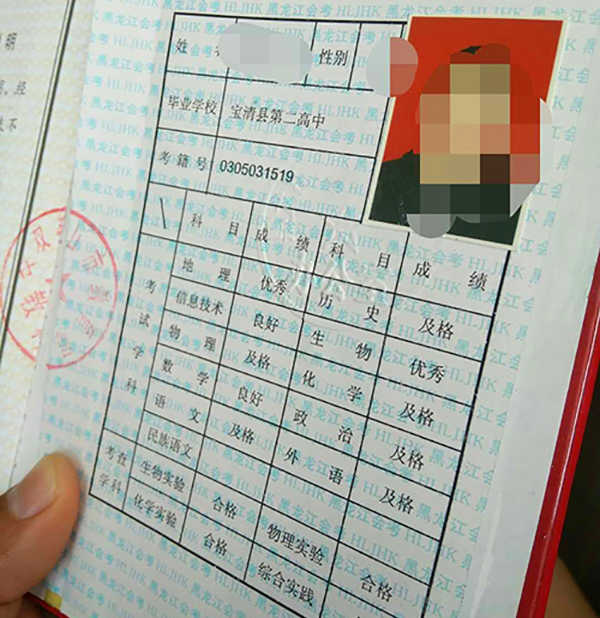 姓 性别
毕业学校 宝清县第二高中
考籍号 0305031519
科目 成绩 科目 成绩
考试学科
地理 优秀 历史 及格
信息技术 良好 生物 优秀
物理 及格 化学 及格
数学 良好 政治 及格
语文 及格 外语 及格
民族语文
考查学科
生物实验 合格 物理实验 合格
化学实验 合格 综合实践 合格
黑龙江会考 HLJHK